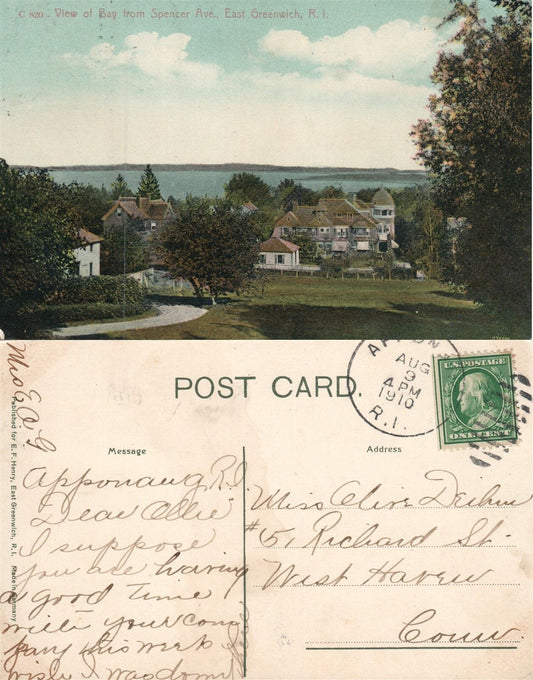 C 820. View of Bay from Spencer Ave., East Greenwich, R. I.
POST CARD.
APPON
AUG
9
4 PM
1910
R.I.
U.S. POSTAGE
ONE CENT
Message
Address
Published for E. F. Henry, East Greenwich, R. I. Made in Germany
Mrs E
Apponaug R.I.
Dear Ollie
I suppose
you are having
a good time
with your com
pany this week I
wish I was
Miss Olive
#5, Richard St.
West Haven
Conn.